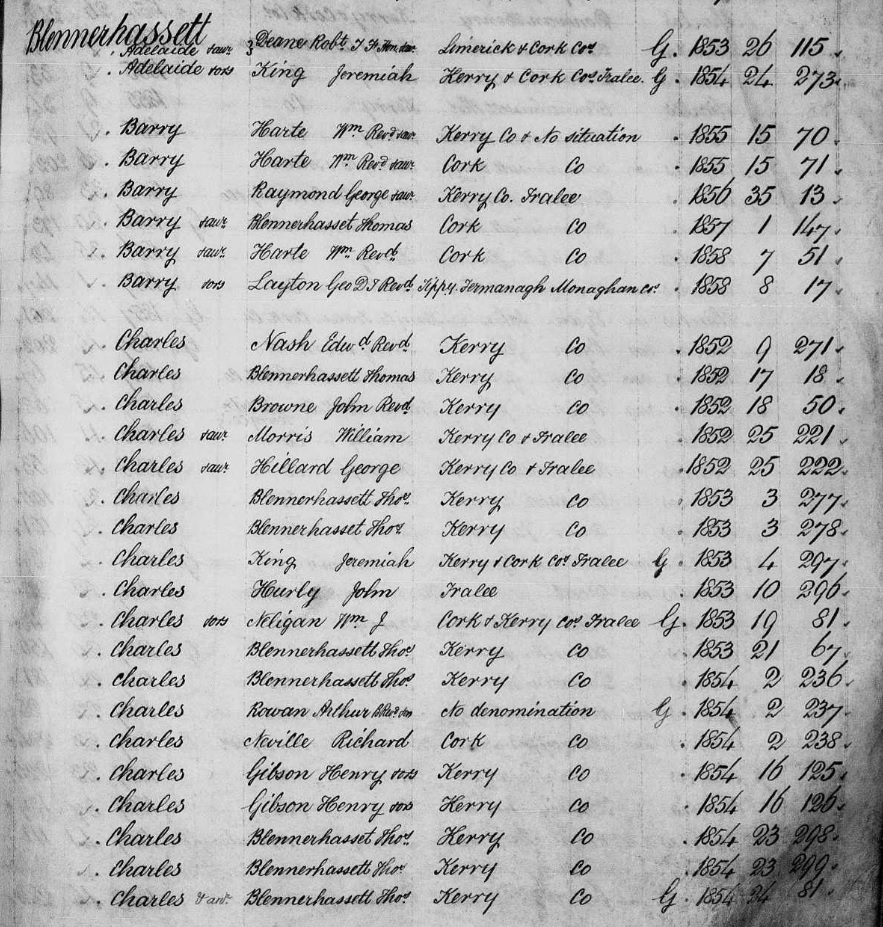 Blennerhassett
Adelaide Deane Robt. Limerick & Cork Cos G. 1853 26 115
Adelaide ors King Jeremiah Kerry & Cork Cos Tralee. G. 1854 24 273
Barry Harte Wm Revd Kerry Co & No situation 1855 15 70
Barry Harte Wm Revd Cork Co 1855 15 71
Barry Raymond George Kerry Co. Tralee 1856 35 13
Barry Blennerhasset Thomas Cork Co 1857 1 147
Barry Harte Wm Revd Cork Co 1858 7 51
Barry ors Layton Geo Revd Tippy. Fermanagh Monaghan Cos 1858 8 17
Charles Nash Edwd Revd Kerry Co 1852 9 271
Charles Blennerhassett Thomas Kerry Co 1852 17 18
Charles Browne John Revd Kerry Co 1852 18 50
Charles Morris William Kerry Co & Tralee 1852 25 221
Charles Hillard George Kerry Co & Tralee 1852 25 222
Charles Blennerhassett Thos Kerry Co 1853 3 277
Charles Blennerhasset Thos Kerry Co 1853 3 278
Charles King Jeremiah Kerry & Cork Cos Tralee G. 1853 4 297
Charles Hurly John Tralee 1853 10 296
Charles ors Neligan Wm J Cork & Kerry Cos Tralee G. 1853 19 81
Charles Blennerhassett Thos Kerry Co 1853 21 67
Charles Blennerhassett Thos Kerry Co 1854 2 236
Charles Rowan Arthur No denomination G. 1854 2 237
Charles Neville Richard Cork Co 1854 2 238
Charles Gibson Henry ors Kerry Co 1854 16 125
Charles Gibson Henry ors Kerry Co 1854 16 126
Charles Blennerhasset Thos Kerry Co 1854 23 298
Charles Blennerhasset Thos Kerry Co 1854 23 299
Charles & anr Blennerhassett Thos Kerry Co G. 1854 24 81